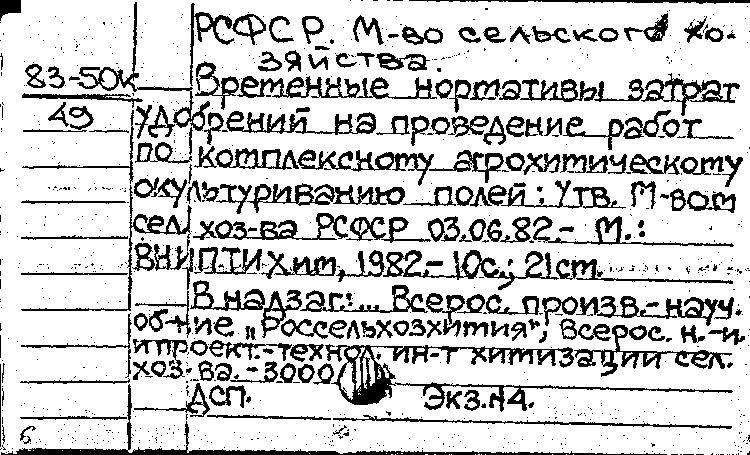 РСФСР. М-во сельского хо-
зяйства.
83-50к
49
Временные нормативы затрат
удобрений на проведение работ
по комплексному агрохимическому
окультуриванию полей: Утв. М-вом
сел. хоз-ва РСФСР 03.06.82.- М.:
ВНИПТИХим, 1982.- 10с.; 21 см.
В надзаг.: ... Всерос. произв.-науч.
об-ние „Россельхозхимия", Всерос. н.-и.
и проект.-технол. ин-т химизации сел.
хоз-ва. - 3000
ДСП. Экз.N4.
6